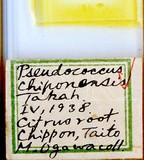 Pseudococcus
chiponensis
Takah.
IV, 1938
Citrus root
Chippon, Taito
M. Ogawa coll